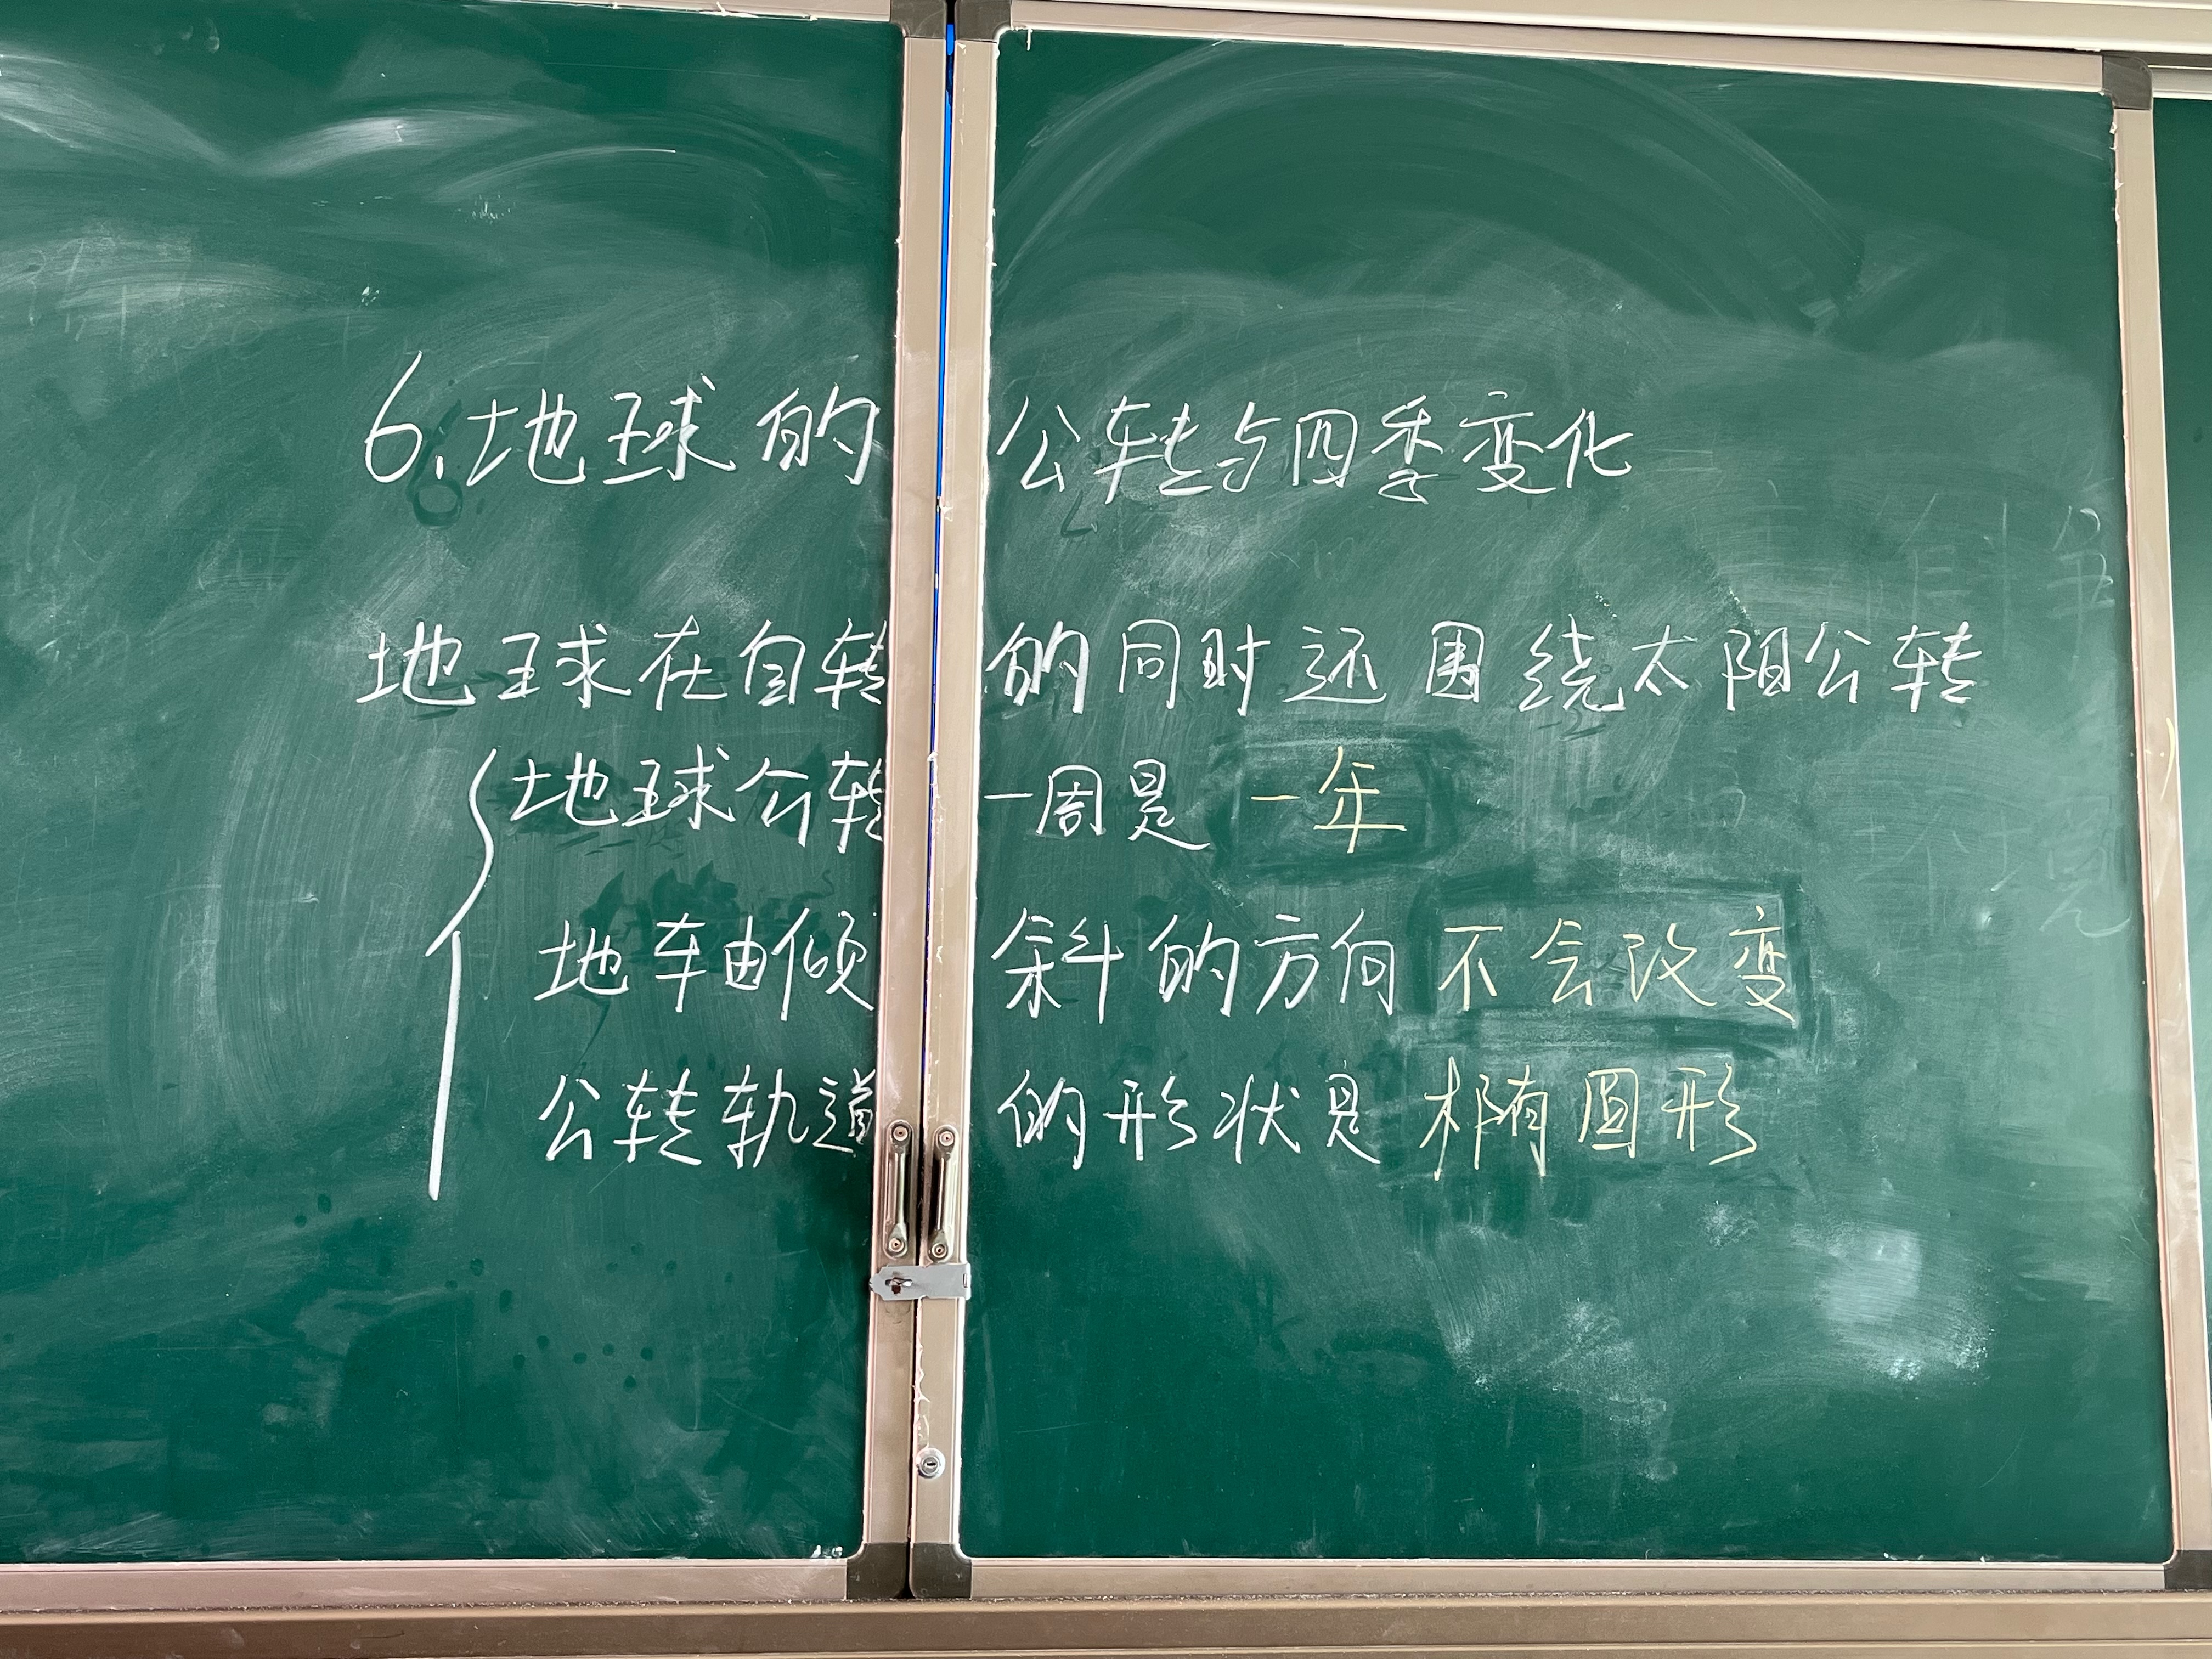 6.地球的公转与四季变化
地球在自转的同时还围绕太阳公转
地球公转一周是一年
地轴倾斜的方向不会改变
公转轨道的形状是椭圆形